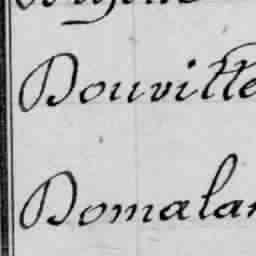 Douville
Domalan